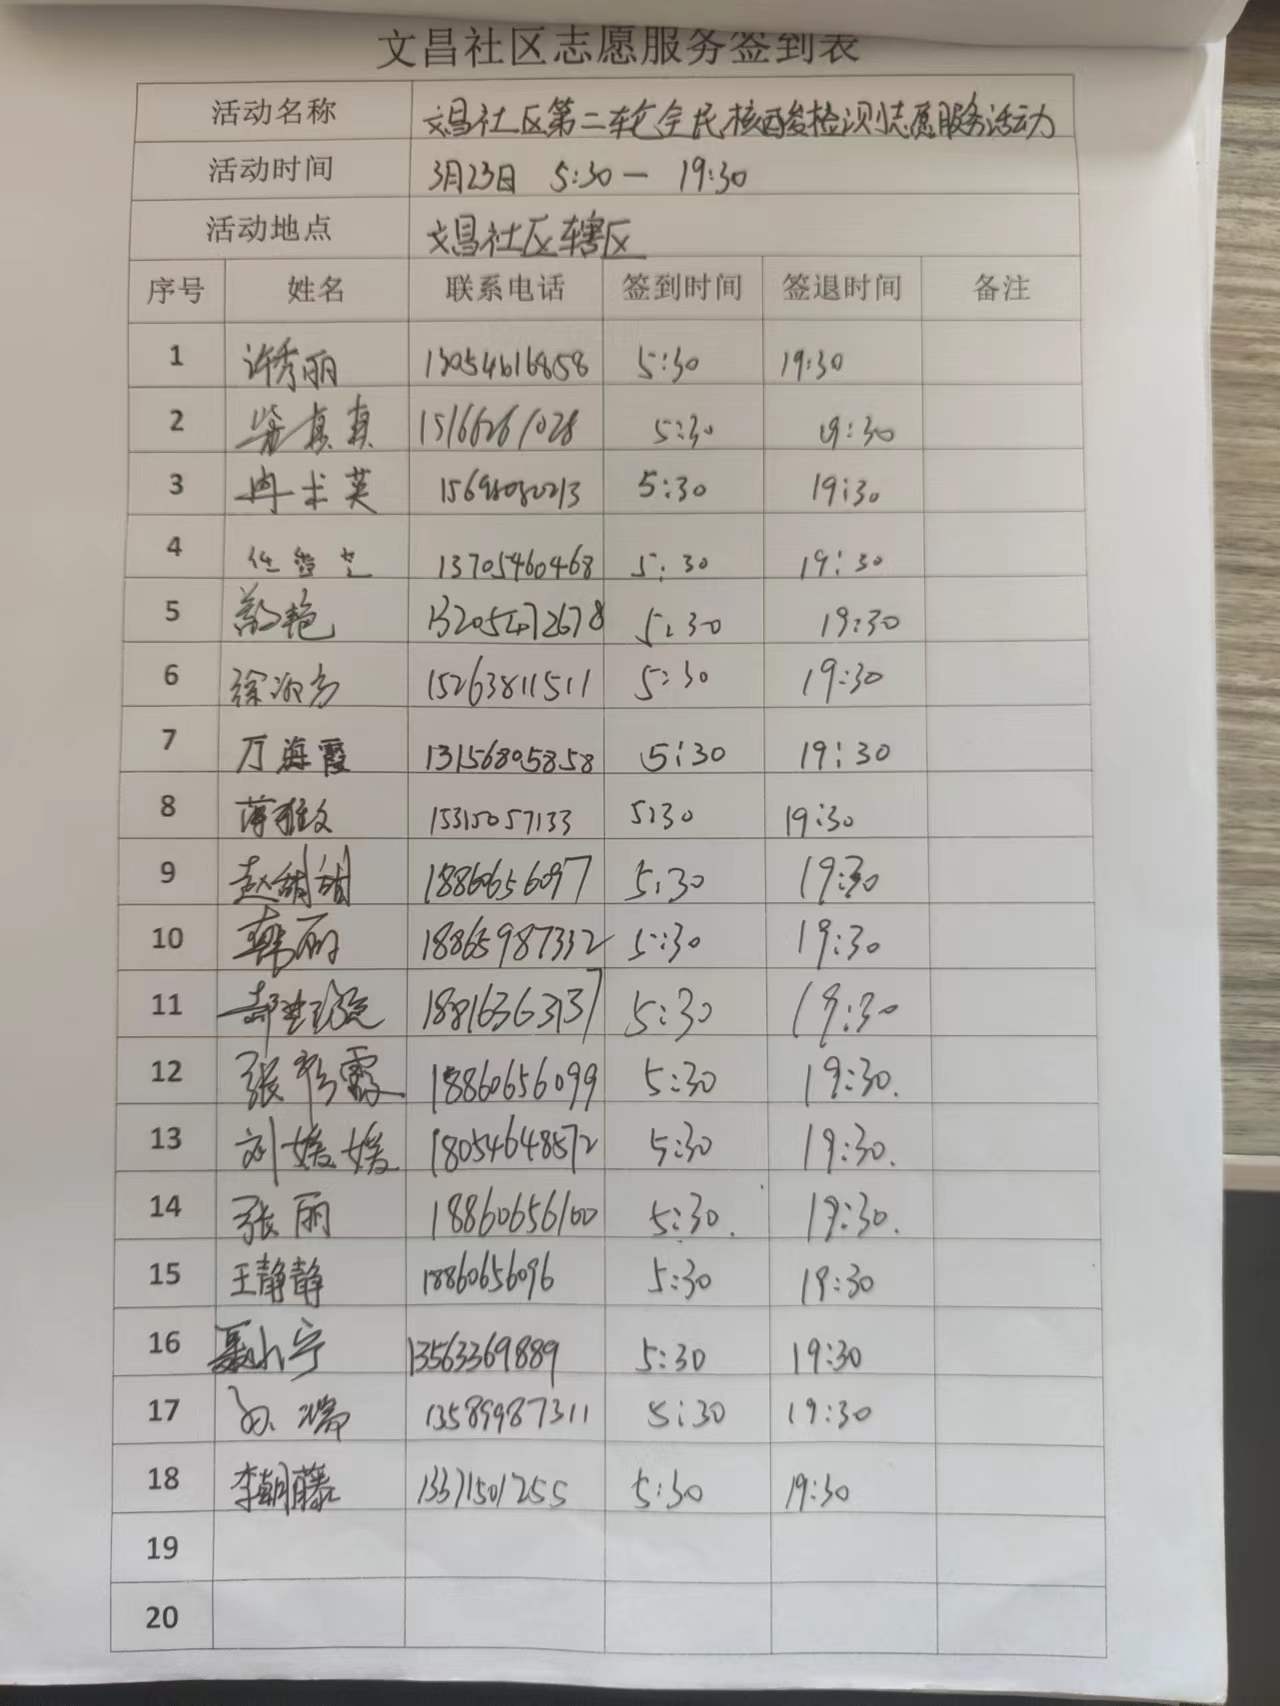 文昌社区志愿服务签到表
活动名称 文昌社区第二轮全民核酸检测志愿服务活动
活动时间 3月23日 5:30一 19:30
活动地点 文昌社区辖区
序号 姓名 联系电话 签到时间 签退时间 备注
1 许秀丽 13054616858 5:30 19:30
2 真真 15166261028 5:30 19:30
3 冉术英 5:30 19:30
4 任 13705460468 5:30 19:30
5 艳 13205472678 5:30 19:30
6 徐 15263811511 5:30 19:30
7 万海霞 13156805858 5:30 19:30
8 薄雅文 15315057133 5:30 19:30
9 赵甜甜 18860656097 5:30 19:30
10 韩丽 18865987332 5:30 19:30
11 18816363137 5:30 19:30
12 张彩霞 18860656099 5:30 19:30.
13 刘媛媛 18054648572 5:30 19:30.
14 张丽 18860656100 5:30. 19:30.
15 王静静 18860656096 5:30 19:30
16 聂小宁 13563369889 5:30 19:30
17 孙瑞 13589987311 5:30 19:30
18 李朝藤 13371501255 5:30 19:30
19
20